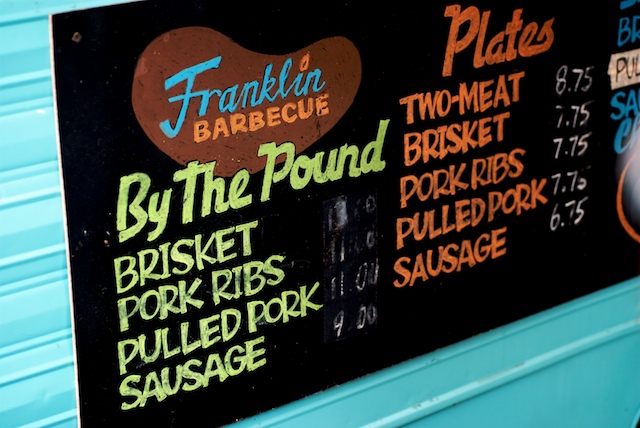 Franklin
BARBECUE
By The Pound
BRISKET
PORK RIBS
PULLED PORK 11.00
SAUSAGE 9.00
Plates
TWO-MEAT 8.75
BRISKET 7.75
PORK RIBS 7.75
PULLED PORK 7.75
SAUSAGE 6.75